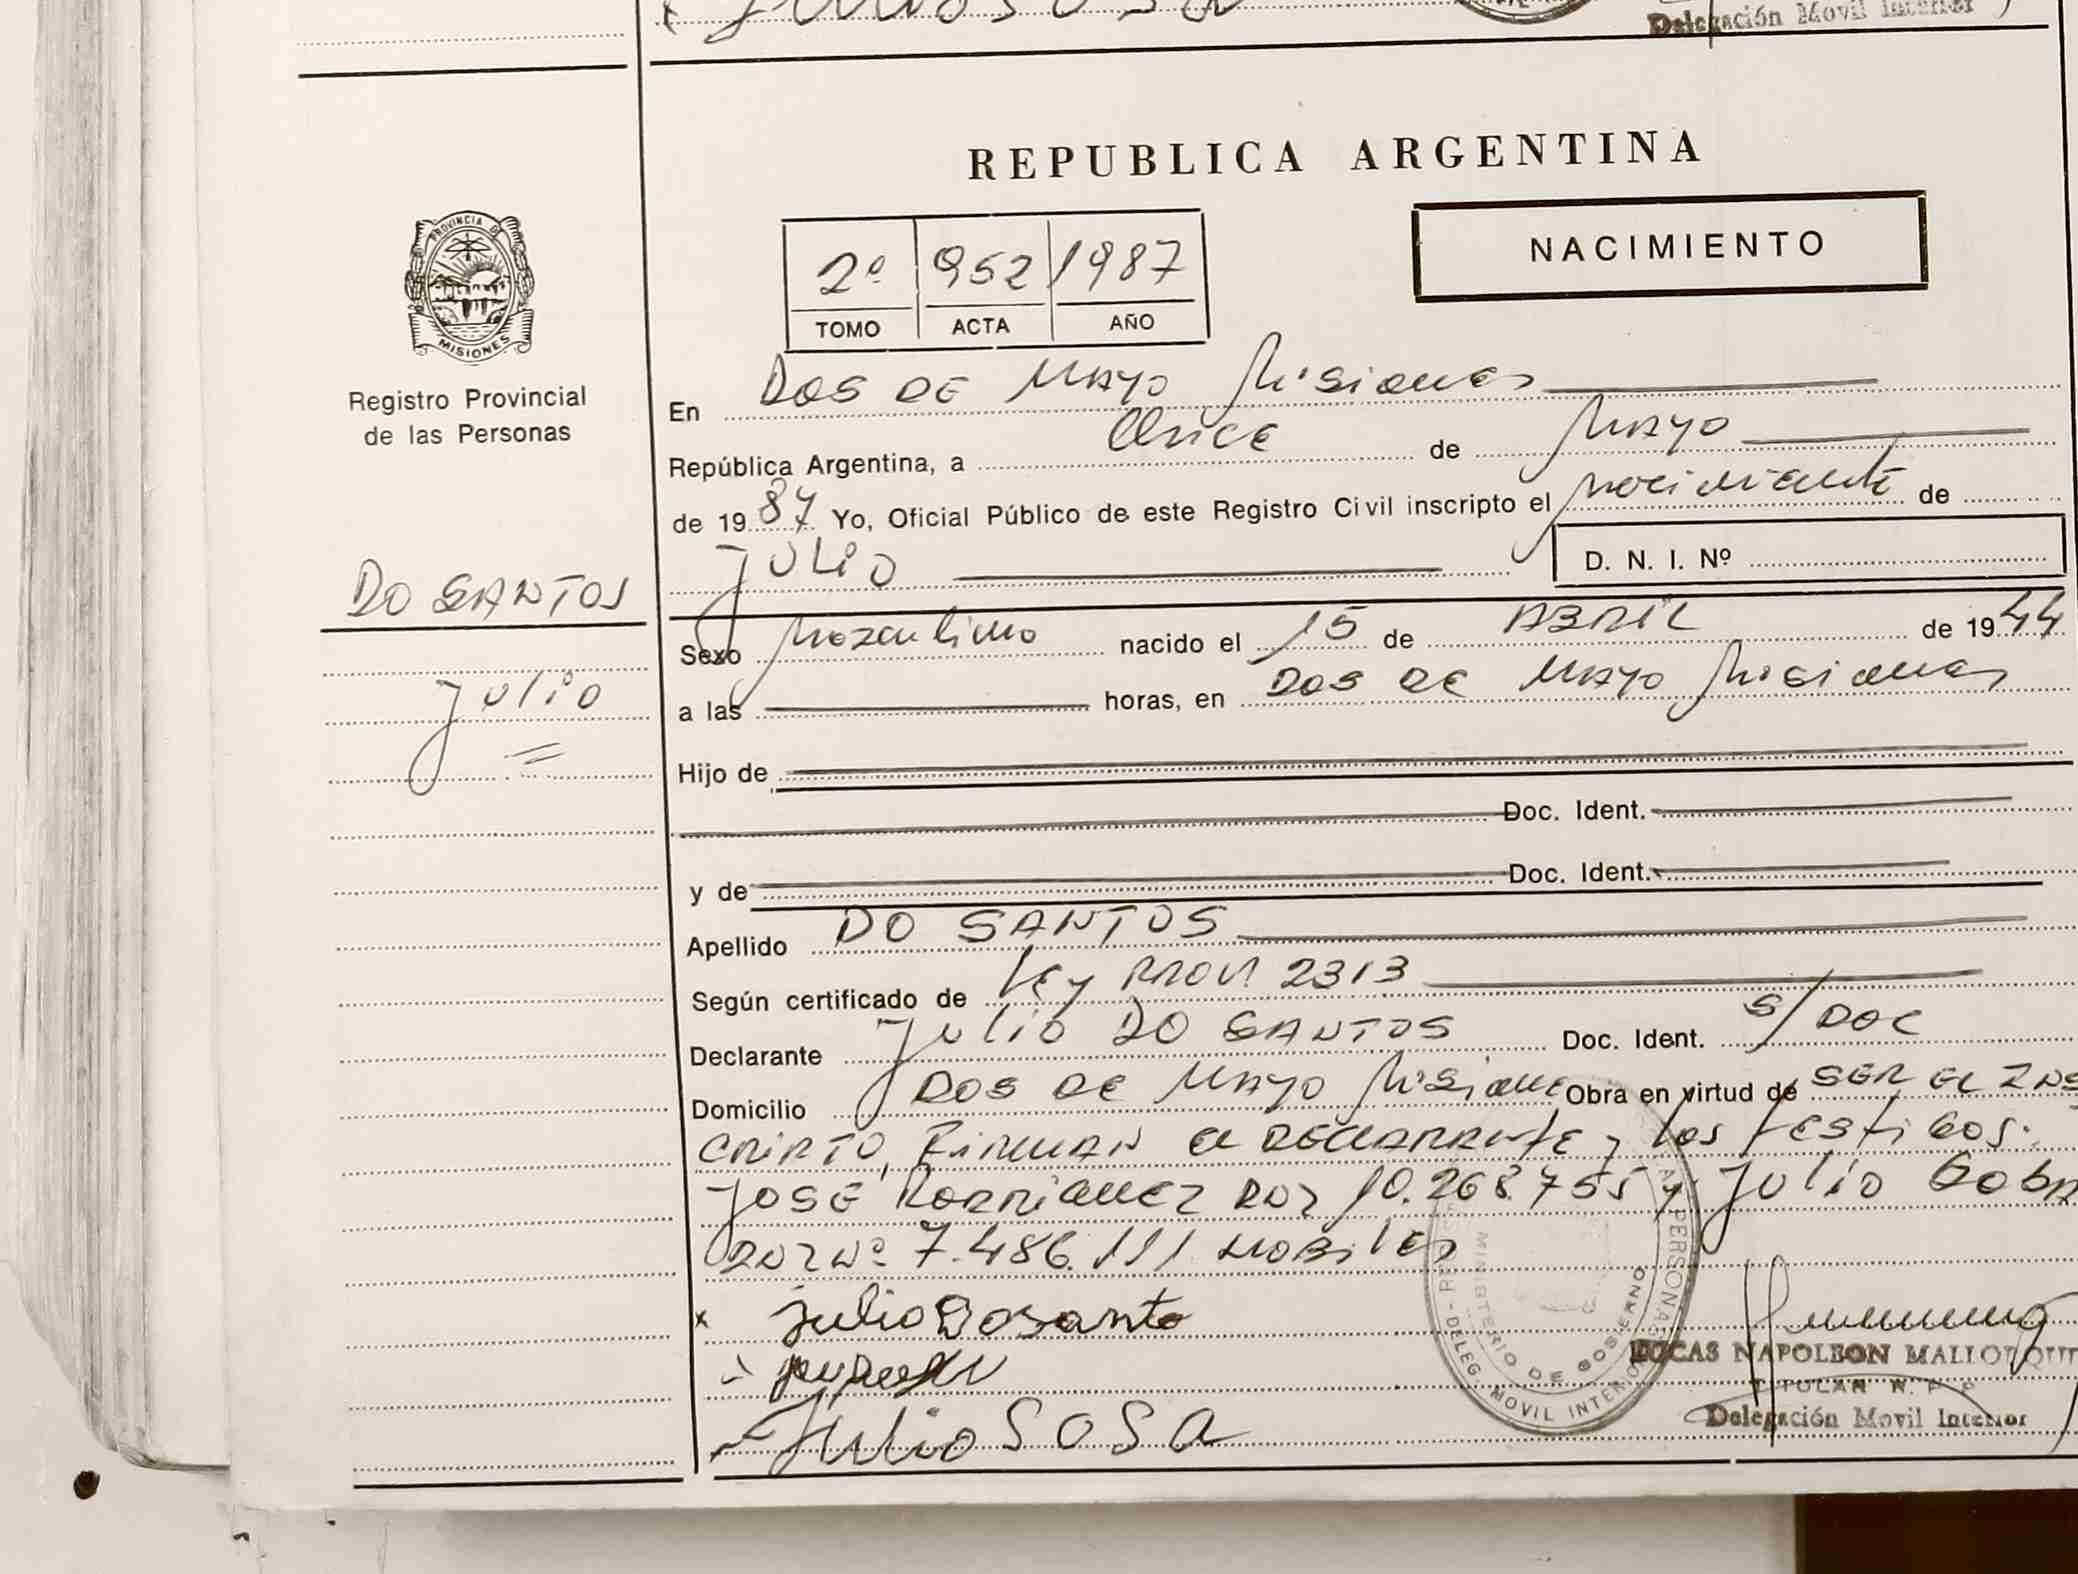 Delegación Movil Interior
REPUBLICA ARGENTINA
NACIMIENTO
2º 952 1987
TOMO ACTA AÑO
PROVINCIA DE
MISIONES
Registro Provincial
de las Personas
En DOS DE MAYO Misiones
República Argentina, a Once de MAYO
de 1987 Yo, Oficial Público de este Registro Civil inscripto el nacimiento de
JULIO D. N. I. Nº
DO SANTOS
Julio
Sexo Masculino nacido el 15 de ABRIL de 1944
a las horas, en DOS DE MAYO Misiones
Hijo de
Doc. Ident.
y de Doc. Ident.
Apellido DO SANTOS
Según certificado de Ley PROV. 2313
Declarante Julio DO SANTOS Doc. Ident. S/DOC
Domicilio DOS DE MAYO Misiones Obra en virtud de SER EL INS
CRIPTO, FIRMAN el DECLARANTE y los testigos:
JOSE RODRIGUEZ DNI 10.268.755 y Julio
DNI Nº 7.486.111
x julio Dosanto
Julio SOSA
MINISTERIO DE GOBIERNO
DELEG. MOVIL INTERIOR
PERSONAS
LUCAS NAPOLEON
TITULAR R. P. P.
Delegación Movil Interior